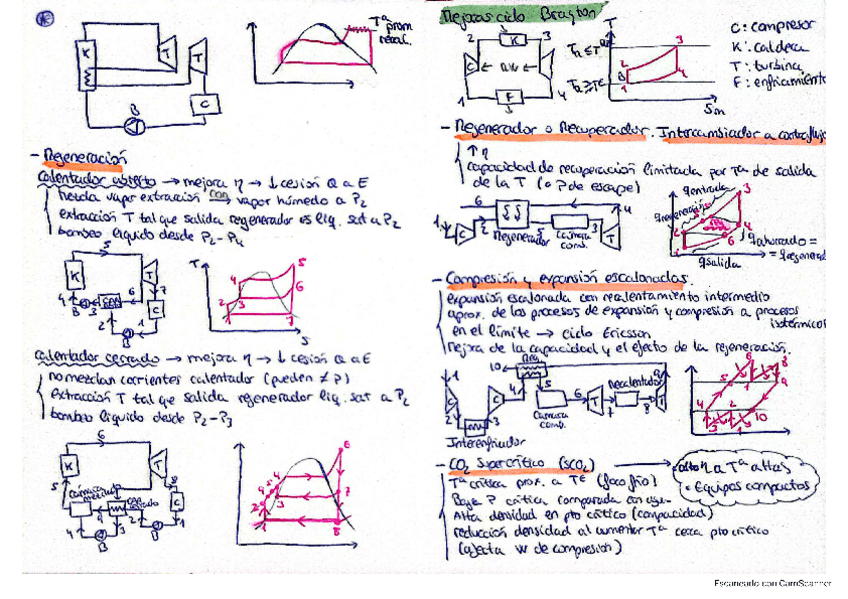 K
T
T
C
B
Tª prom
recal.
- Regeneración
calentador abierto → mejora η → ↓ cesión Q a E
mezcla vapor extracción con vapor húmedo a P2
extracción T tal que salida regenerador es liq. sat a P2
bombeo líquido desde P2-P4
5
K
T
7
C
4
B
3
2
B
1
T
5
4
6
2
3
1
7
S
calentador cerrado → mejora η → ↓ cesión Q a E
no mezclan corrientes calentador (pueden ≠ P)
extracción T tal que salida regenerador liq. sat a P2
bombeo líquido desde P2-P3
6
K
T
5
cámara
mezclado
cerrado
8
C
4
B
3
2
B
1
6
5
4
7
3
8
Mejoras ciclo Brayton
2
K
3
C
1
F
4
T
3
2
4
1
Sm
C: compresor
K: caldera
T: turbina
F: enfriamiento
- Regenerador o Recuperador. Intercambiador a contraflujo
↑ η
capacidad de recuperación limitada por Tª de salida
de la T (o P de escape)
6
4
1
C
2
Regenerador
5
cámara
comb.
3
T
qentrada
3
qregeneración
4
6
1
qsalida
qahorrado =
= qregenerad
- Compresión y expansión escalonadas.
expansión escalonada con recalentamiento intermedio
aprox. de los procesos de expansión y compresión a procesos
isotérmicos
en el límite → ciclo Ericsson
mejora de la capacidad y el efecto de la regeneración.
10
1
C
2
C
3
4
5
cámara
comb.
6
T
7
Recalentador
8
T
9
Interenfriador
6
8
9
4
2
10
3
1
- CO2 supercrítico (sCO2)
alto η a Tª altas
• Equipos compactos
Tª crítica prox. a TE (foco frío)
Baja P crítica comparada con agua
Alta densidad en pto crítico (compacidad)
reducción densidad al aumentar Tª cerca pto crítico
(afecta W de compresión)
Escaneado con CamScanner